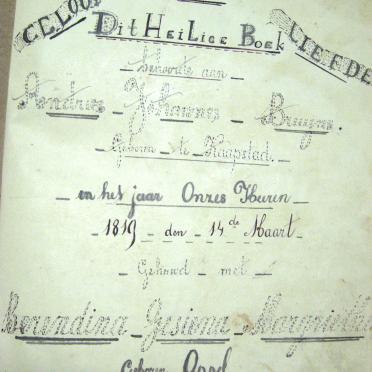 GELOOF
LIEFDE
Dit Heilige Boek
behoorte aan
Andries - Johannes - Bruyns.
Geboren te Kaapstad.
in het jaar Onzes Heeren
- 1819 - den - 14de Maart -
- Gehuwd - met -
Berendina - Gesiena - Margrietha
Geboren Oord